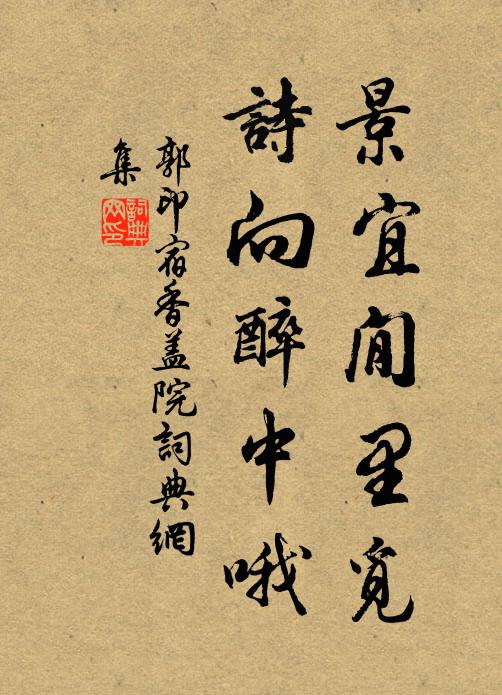 景宜閒里覓
詩向醉中哦
郭印宿香蓋院詞典網
集
詞典網印